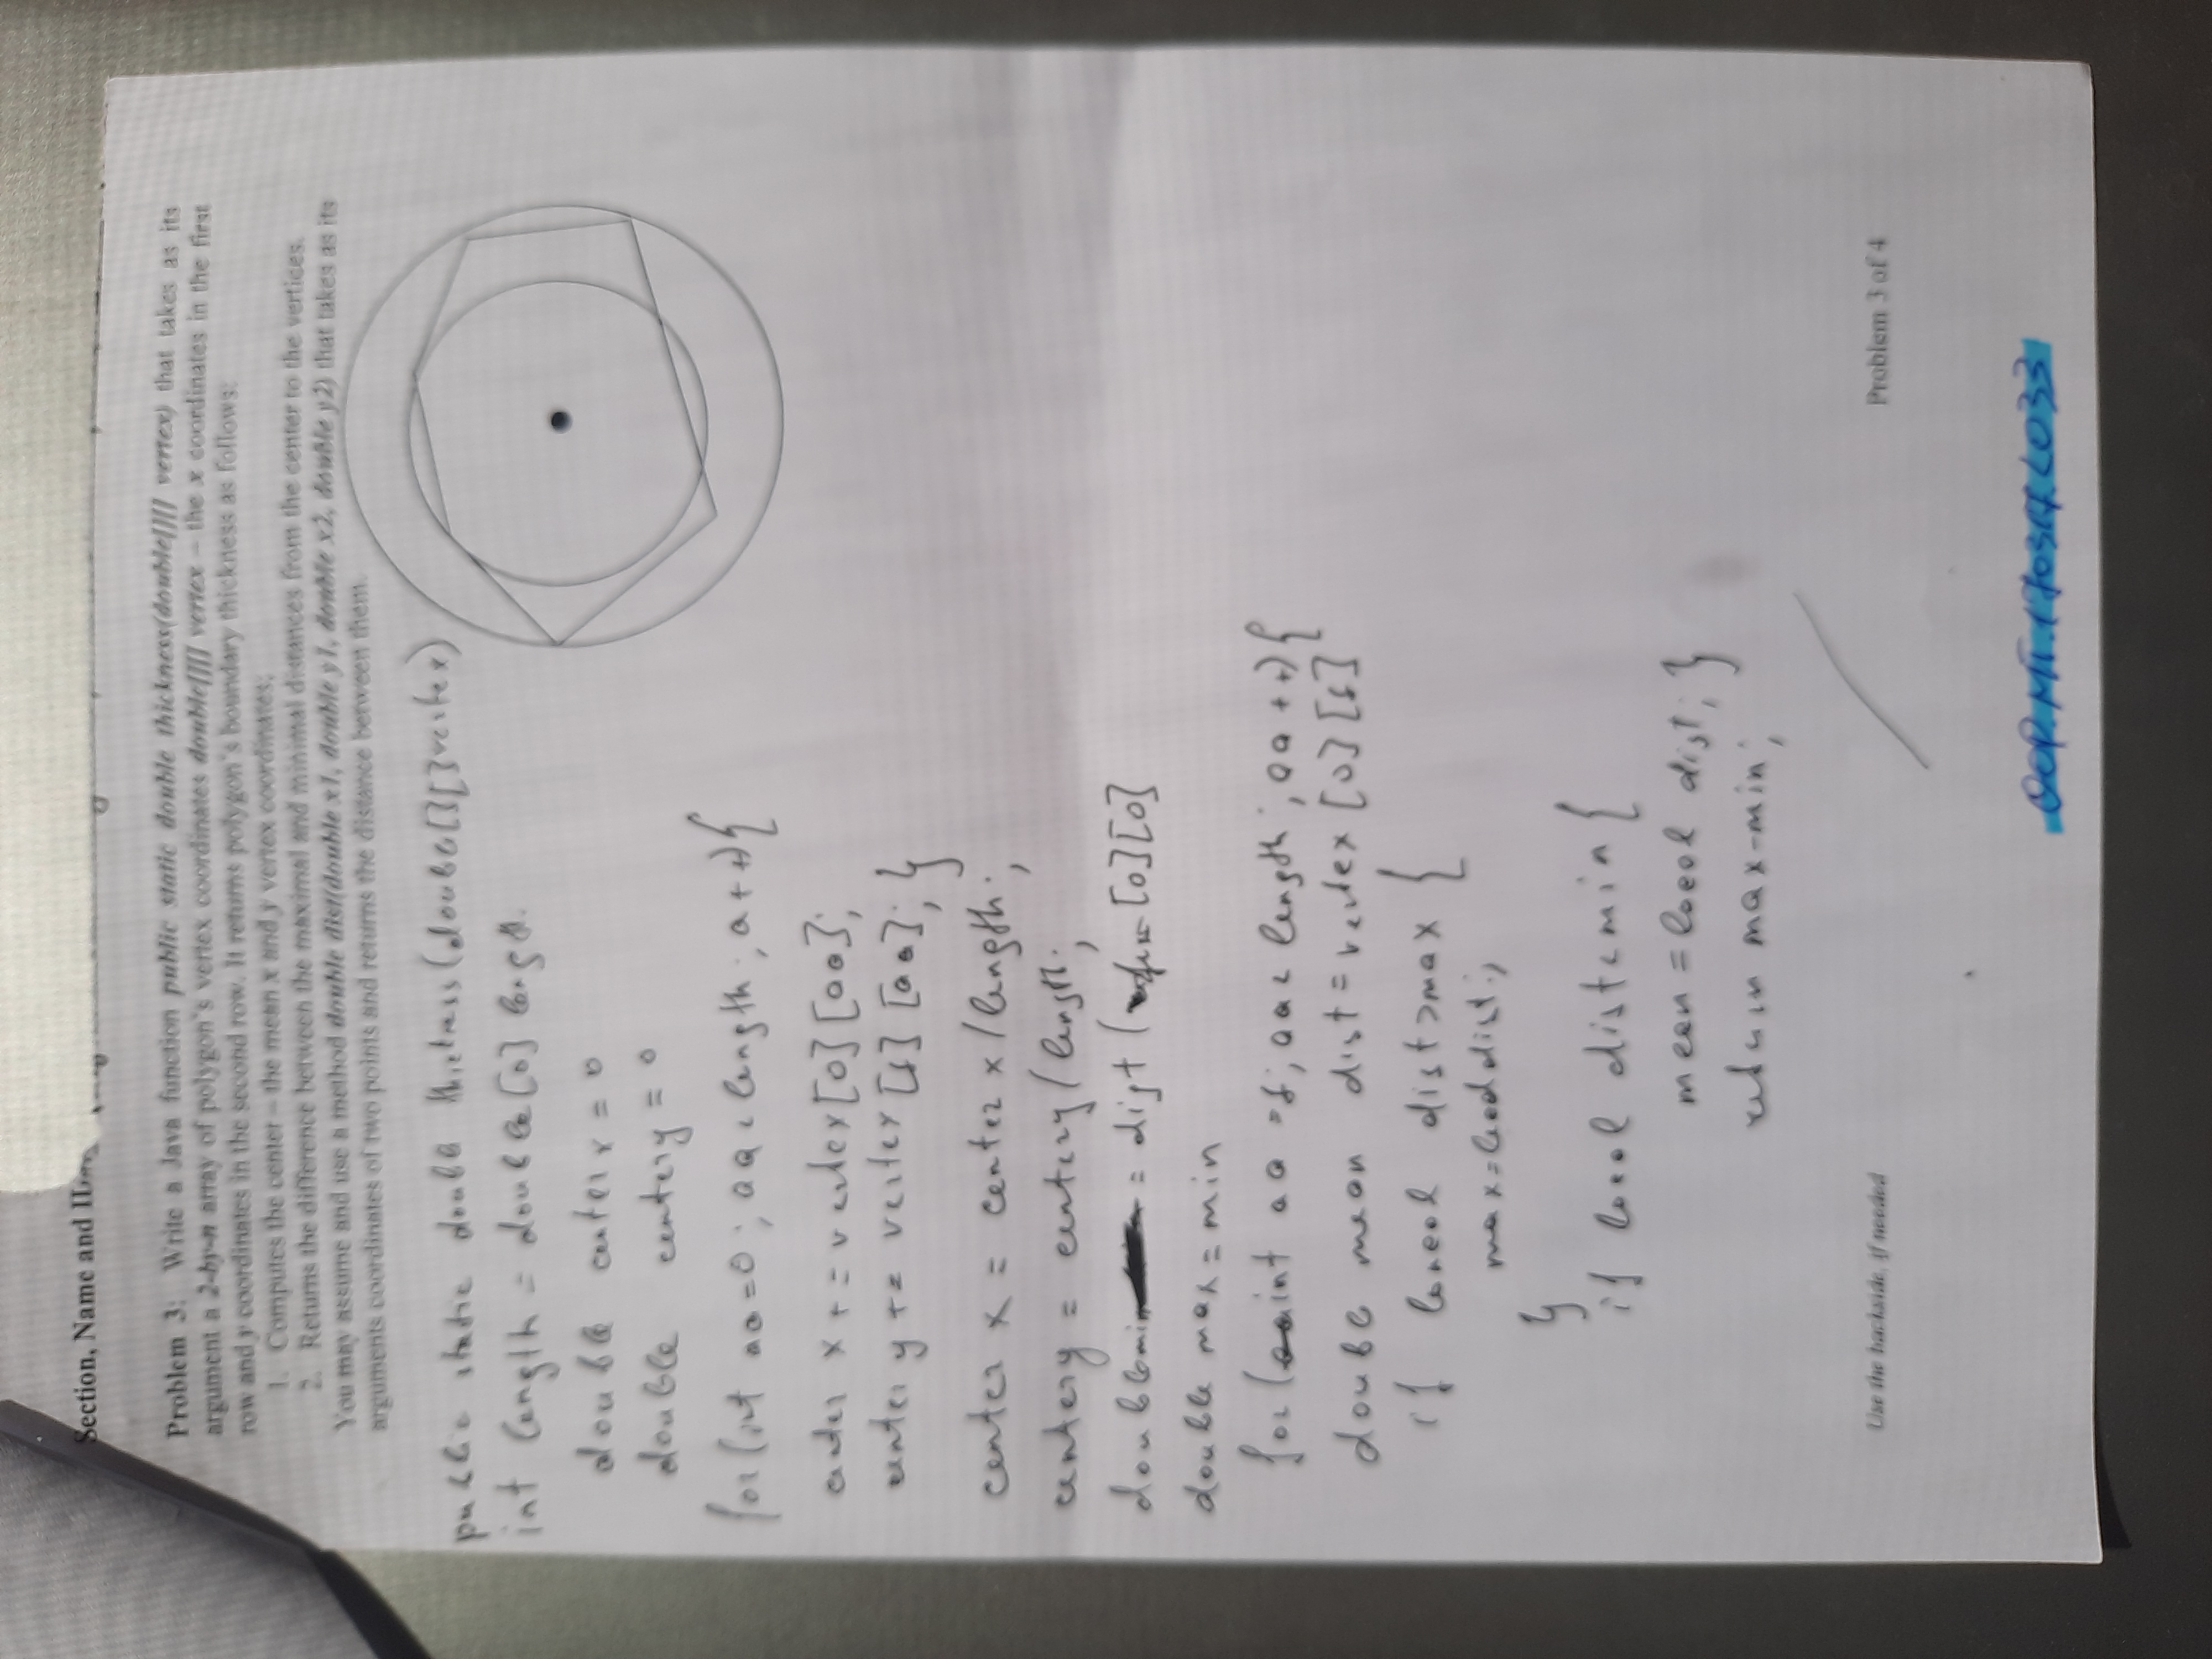 Section, Name and ID
Problem 3: Write a Java function public static double thickness(double[][] vertex) that takes as its
argument a 2-by-n array of polygon's vertex coordinates double[][] vertex – the x coordinates in the first
row and y coordinates in the second row. It returns polygon's boundary thickness as follows:
1. Computes the center – the mean x and y vertex coordinates;
2. Returns the difference between the maximal and minimal distances from the center to the vertices.
You may assume and use a method double dist(double x1, double y1, double x2, double y2) that takes as its
arguments coordinates of two points and returns the distance between them.
public static double thickness(double[][] vertex)
int length = double[0] length.
double center x = 0
double centery = 0
for (int aa=0; aa < length; a++){
center x += vertex[0][aa];
center y += vertex[1][aa]; }
center x = center x / length;
centery = centery / length;
double min = dist ( [0][0]
double max = min
for (int aa =1; aa < length; aa++){
double mean dist = vertex [0][1]
if loncal dist > max {
max = local dist;
}
if local dist < min {
mean = local dist; }
return max-min;
Use the backside, if needed
Problem 3 of 4
OOP.MT.170317.L033